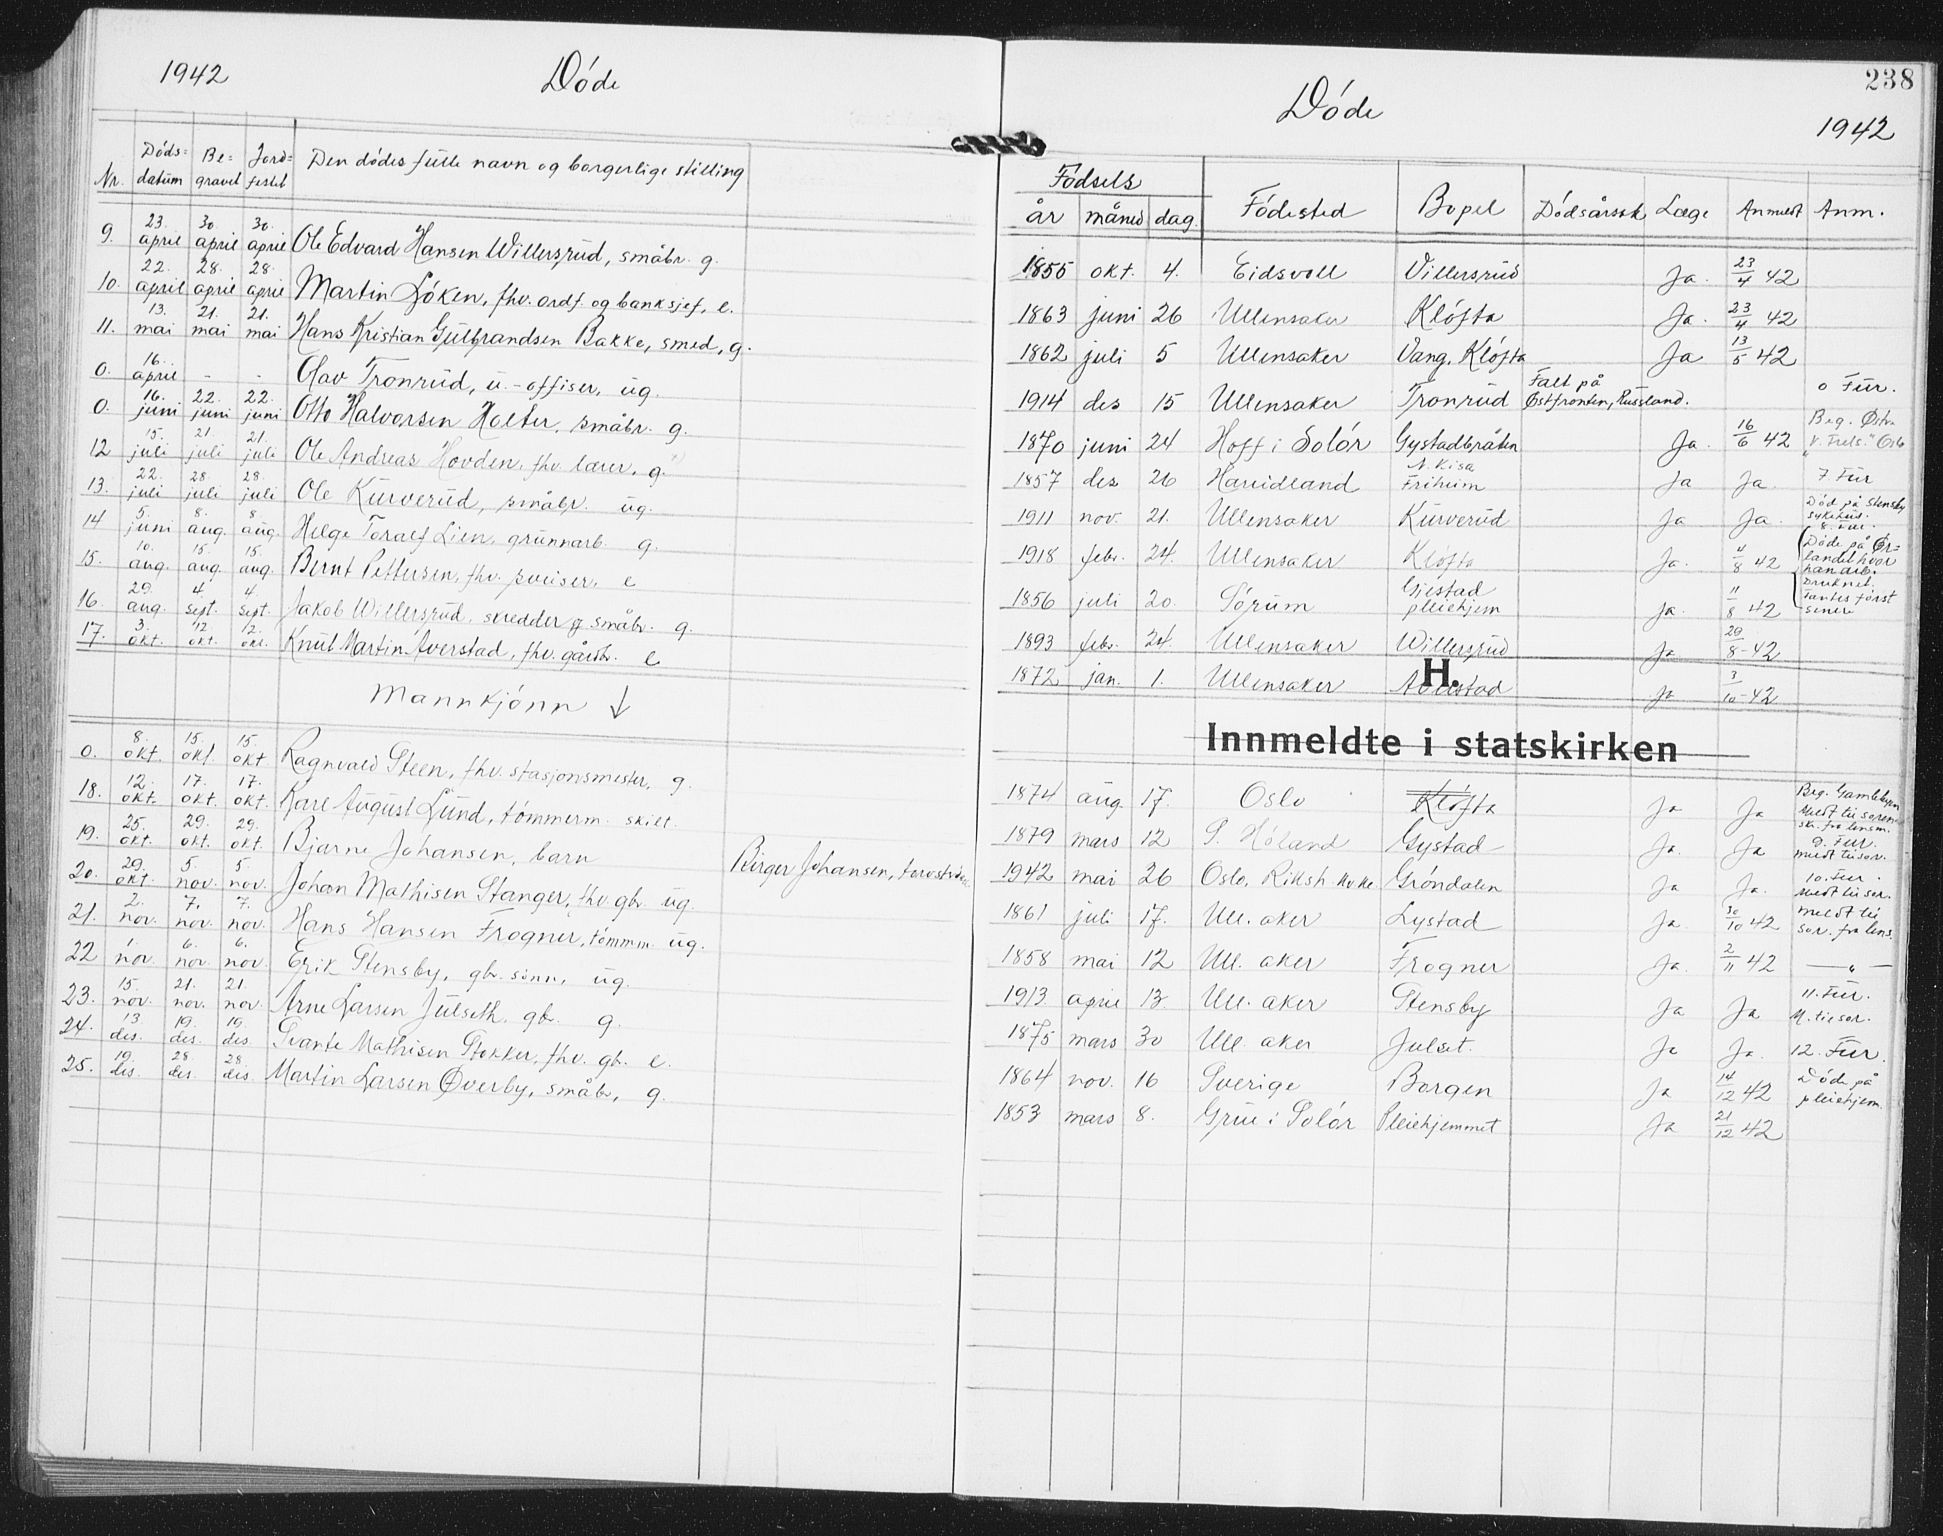 1942 Døde
Nr. Døds-datum Be-gravet Jord-festet Den dødes fulle navn og borgerlige stilling
9. 23. april 30. april 30. april Ole Edvard Hansen Willersrud, småbr. g.
10. 22. april 28. april 28. april Martin Løken, fhv. ordf. og banksjef, e.
11. 13. mai 21. mai 21. mai Hans Kristian Gulbrandsen Bakke, smed, g.
0. 16. april - - Olav Tronrud, u.-offiser, ug.
0. 16. juni 22. juni 22. juni Otto Halvorsen Holter, småbr. g.
12 15. juli 21. juli 21. juli Ole Andreas Hovden, fhv. lærer, g.
13. 22. juli 28. juli 28. juli Ole Kurverud, småbr. ug.
14 5. juni 8. aug. 8. aug. Helge Toralf Lien, grunnarb. g.
15. 10. aug. 15. aug. 15. aug. Bernt Pettersen, fhv. sveiser, e
16. 29. aug. 4. sept. 4. sept. Jakob Willersrud, skredder og småbr. g.
17. 3. okt. 12. okt. 12. okt. Knut Martin Averstad, fhv. gårdbr. e
Mannkjønn ↓
0. 8. okt. 15. okt. 15. okt Ragnvald Steen, fhv. stasjonsmester, g.
18. 12. okt. 17. okt. 17. okt. Karl August Lund, tømmerm. skilt.
19. 25. okt. 29. okt. 29. okt. Bjarne Johansen, barn Birger Johansen,
20. 29. okt. 5. nov. 5. nov. Johan Mathisen Stanger, fhv. gbr. ug.
21. 2. nov. 7. nov. 7. nov. Hans Hansen Frogner, tømmm. ug.
22 1. nov. 6. nov. 6. nov. Erik Stensby, gbr. sønn, ug.
23. 15. nov. 21. nov. 21. nov. Arne Larsen Julseth, gbr. g.
24. 13. des. 19. des. 19. des. Svante Mathisen Stokker, fhv. gb. e.
25. 19. des. 28. des. 28. des. Martin Larsen Øverby, småbr, g.
238
Døde 1942
Fødsels
år måned dag Fødested Bopel Dødsårsak Læge Anmeldt Anm.
1855 okt. 4. Eidsvoll Villersrud Ja. 23/4 42
1863 juni 26 Ullensaker Kløfta Ja. 23/4 42
1862 juli 5 Ullensaker Vang, Kløfta Ja 13/5 42
1914 des 15 Ullensaker Tronrud Falt på Østfronten, Russland. 0 Fur.
1870 juni 24 Hoff i Solør Gystadbråten Ja. 16/6 42 Beg. Østre "V. Frels." Oslo
1857 des 26 Hareidland N. Kisa Friheim Ja Ja. 7 Fur
1911 nov. 21. Ullensaker Kurverud Ja Ja. Død på Stensby sykehus. 8. Fur.
1918 febr. 24. Ullensaker Kløfta Ja. 4/8 42 Døde på Ørlandet hvor han arb. Druknet. Fantes først senere
1856 juli 20. Sørum Gjestad pleiehjem Ja. 11/8 42
1893 febr. 24. Ullensaker Willersrud Ja 29/8-42
1872 jan. 1. Ullensaker Averstad Ja 3/10-42
H.
Innmeldte i statskirken
1874 aug. 17. Oslo Kløfta Ja Ja Beg. Gamlebyen
1879 mars 12 S. Høland Gystad Ja. Ja Meldt til soren. skr. fra lensm. 9. Fur.
1942 mai 26 Oslo, Riksh. Gröndalen Ja Ja. meldt til sor. 10. Fur.
1861 juli 17. Ull. aker Lystad Ja. 30/10 42 Meldt til sor. meldt til sor. fra lens.
1858 mai 12 Ull. aker Frogner Ja. 2/11 42 — " —
1913 april 13. Ull. aker Stensby Ja Ja 11. Fur. M. til sor.
1875 mars 30 Ull. aker Julset. Ja Ja. 12. Fur.
1864 nov. 16 Sverige Borgen Ja 14/12 42 Døde på pleiehjem.
1853 mars 8. Grue i Solør Pleiehjemmet Ja 21/12 42